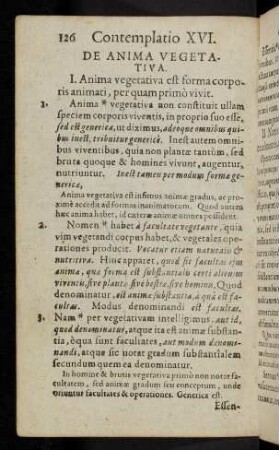 126 Contemplatio XVI.
DE ANIMA VEGETA-
TIVA.
I. Anima vegetativa est forma corpo-
ris animati, per quam primò vivit.
1. Anima * vegetativa non constituit ullam
speciem corporis viventis, in proprio suo esse,
sed est generica, ut diximus, adeoque omnibus qui-
bus inest, tribuitur genericè. Inest autem omni-
bus viventibus, quia non plantæ tantùm, sed
bruta quoque & homines vivunt, augentur,
nutriuntur. Inest tamen per modum formæ ge-
nericæ,
Anima vegetativa est infimus animæ gradus, ac pro-
ximè accedit ad formas inanimatorum. Quod autem
hæc anima habet, id cæteræ animæ omnes possident.
2. Nomen * habet à facultate vegetante, quia
vim vegetandi corpus habet, & vegetales ope-
rationes producit. Vocatur etiam naturalis &
nutritiva. Hinc apparet, quod sit facultas ejus
anima, quæ forma est substantialis certi alicujus
viventis, sive planta sive bestia, sive homino. Quod
denominatur, est anima substantia, à quâ est fa-
cultas. Modus denominandi est facultas.
3. Nam * per vegetativam intelligimus, aut id,
quod denominatur, atque ita est animæ substan-
tia, à qua sunt facultates, aut modum denomi-
nandi, atque sic notat gradum substantialem
secundum quem ea denominatur.
In homine & brutis vegetativa primò non notat fa-
cultatem, sed animæ gradum seu conceptum, unde
oriuntur facultates & operationes. Generica est.
Essen-